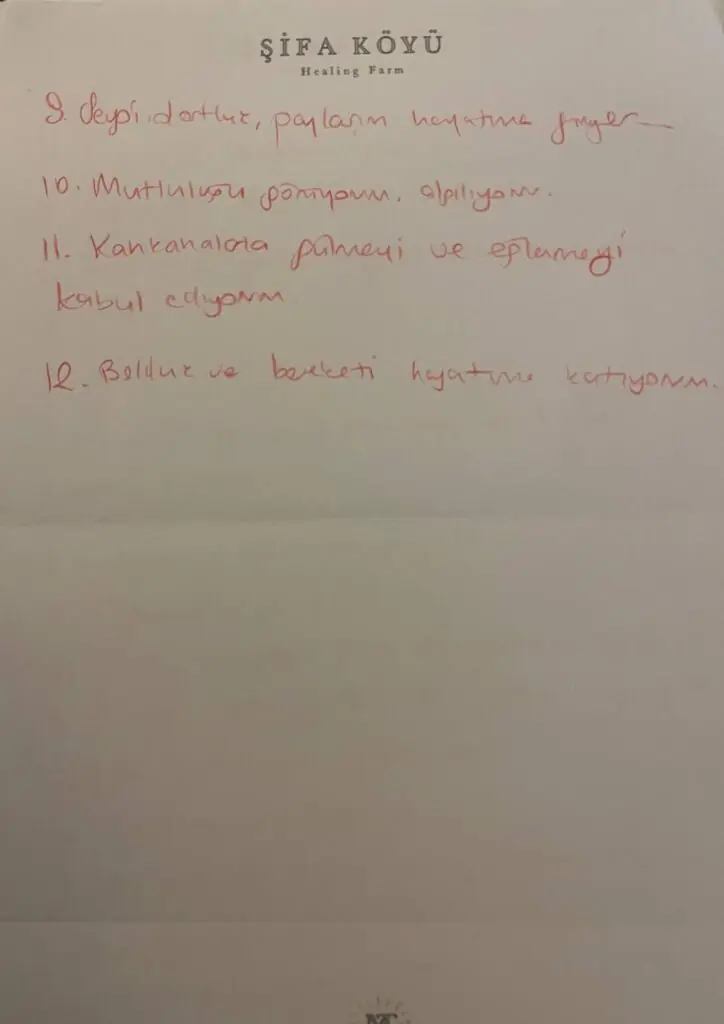 ŞİFA KÖYÜ
Healing Farm
9. Sevgi, dostluk, paylaşım hayatıma giriyor
10. Mutluluğu görüyorum, alıyorum.
11. Kahkahalarla gülmeyi ve eğlenmeyi
kabul ediyorum
12. Bolluk ve bereketi hayatıma katıyorum.